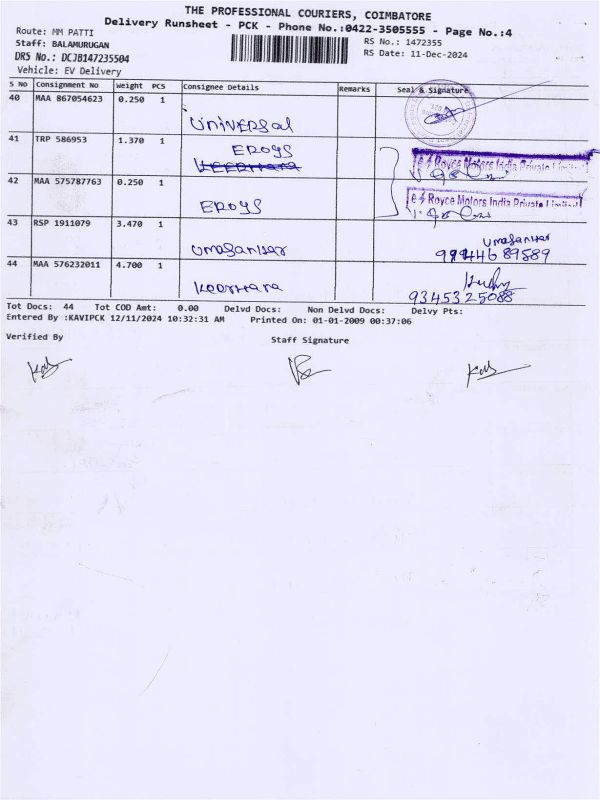 THE PROFESSIONAL COURIERS, COIMBATORE
Delivery Runsheet - PCK - Phone No.:0422-3505555 - Page No.:4
Route: MM PATTI
RS No.: 1472355
Staff: BALAMURUGAN
RS Date: 11-Dec-2024
DRS No.: DCJB147235504
Vehicle: EV Delivery
S No Consignment No Weight PCS Consignee Details Remarks Seal & Signature
40 MAA 867054623 0.250 1
UNIVERSAL
41 TRP 586953 1.370 1
EROYS
KEERHARA
e Royce Motors India Private Limited
42 MAA 575787763 0.250 1
EROYS
e Royce Motors India Private Limited
43 RSP 1911079 3.470 1
Umasankar
Umasankar
9944689589
44 MAA 576232011 4.700 1
Keerhara
9345325088
Tot Docs: 44 Tot COD Amt: 0.00 Delvd Docs: Non Delvd Docs: Delvy Pts:
Entered By :KAVIPCK 12/11/2024 10:32:31 AM Printed On: 01-01-2009 00:37:06
Verified By
Staff Signature